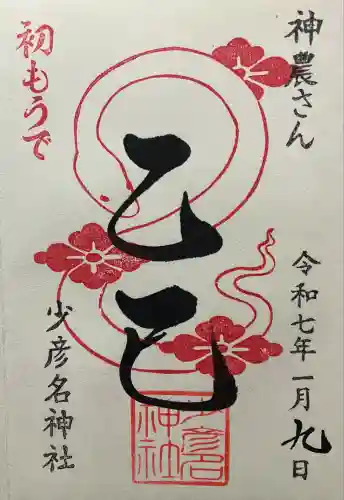 神農さん
初もうで
乙巳
令和七年一月九日
少彦名神社
少彦名
神社